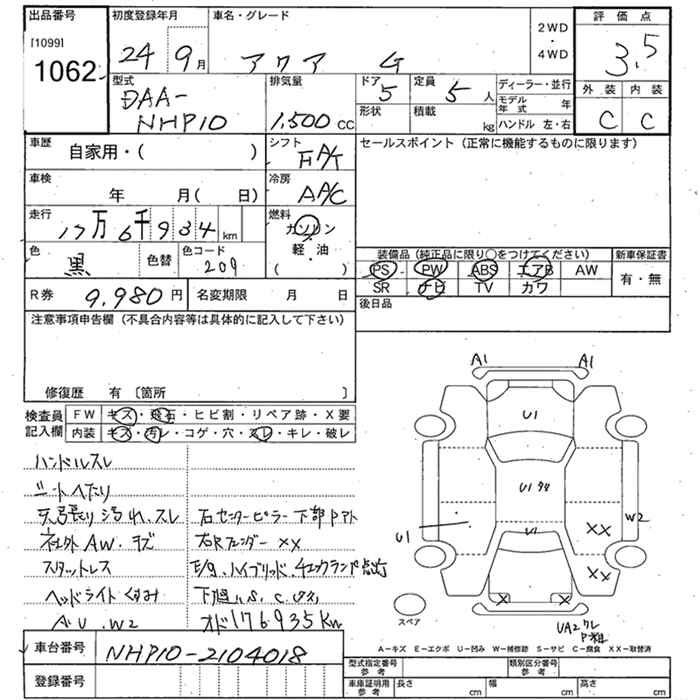 出品番号
[1099]
1062
初度登録年月
24 9月
車名・グレード
アクア G
2WD
・
4WD
評価点
3.5
外装 内装
C C
型式
DAA-
NHP10
排気量
1,500 CC
ドア
5
定員
5 人
形状
積載
kg
ディーラー・並行
モデル年式 年
ハンドル 左・右
車歴
自家用・( )
シフト
FA/T
セールスポイント (正常に機能するものに限ります)
車検
年 月( 日)
冷房
A/C
走行
17万6千934km
燃料
ガソリン
・
軽・油
( )
色
黒
色替
色コード
209
装備品(純正品に限り○をつけてください)
PS PW ABS エアB AW
SR ナビ TV カワ
新車保証書
有・無
R券
9,980円
名変期限 月 日
後日品
注意事項申告欄(不具合内容等は具体的に記入して下さい)
修復歴 有 〔箇所 〕
検査員
記入欄
FW キズ・飛石・ヒビ割・リペア跡・X要
内装 キズ・汚レ・コゲ・穴・スレ・キレ・破レ
ハンドルスレ
シートへたり
天張り汚れ、スレ
社外AW.キズ
スタットレス
ヘッドライトくすみ
AU.W2
右センターピラー下部Pアト
右Rフェンダー XX
E/g.ハイブリッド.チェックランプ点灯
下廻り.S.C.
オド176935Km
A1 A1
U1
U1
U1
U1
W2
XX
XX
X X
UA2
スペア
A−キズ E−エクボ U−凹み W−補修跡 S−サビ C−腐食 XX−取替済
車台番号
NHP10-2104018
登録番号
型式指定番号
参考
類別区分番号
参考
車庫証明用
参考
長さ cm
幅 cm
高さ cm